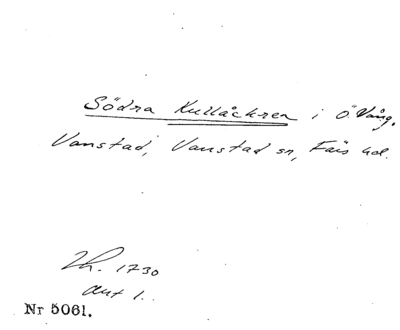 Södra Kullåckren i Ö. Vång.
Vanstad, Vanstad sn, Färs hd.
Lh. 1730
akt 1.
Nr 5061.